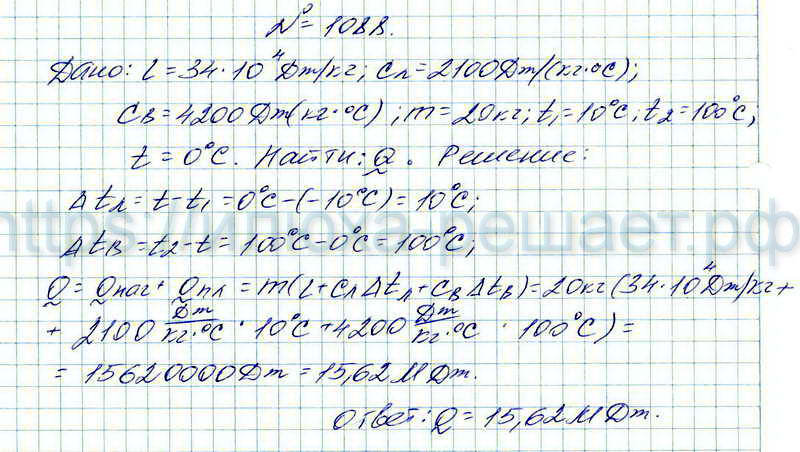 № = 1088.
Дано: L = 34·10⁴ Дж/кг; Cл = 2100 Дж/(кг·°C);
Cв = 4200 Дж(кг·°C); m = 20кг; t₁ = 10°C; t₂ = 100°C;
t = 0°C. Найти: Q. Решение:
Δtл = t - t₁ = 0°C - (-10°C) = 10°C;
https://4лоха-решает.рф
Δtв = t₂ - t = 100°C - 0°C = 100°C;
Q = Qнаг + Qпл = m(L + CлΔtл + CвΔtв) = 20кг(34·10⁴ Дж/кг +
+ 2100 Дж/кг·°C · 10°C + 4200 Дж/кг·°C · 100°C) =
= 15620000Дж = 15,62 МДж.
Ответ: Q = 15,62 МДж.